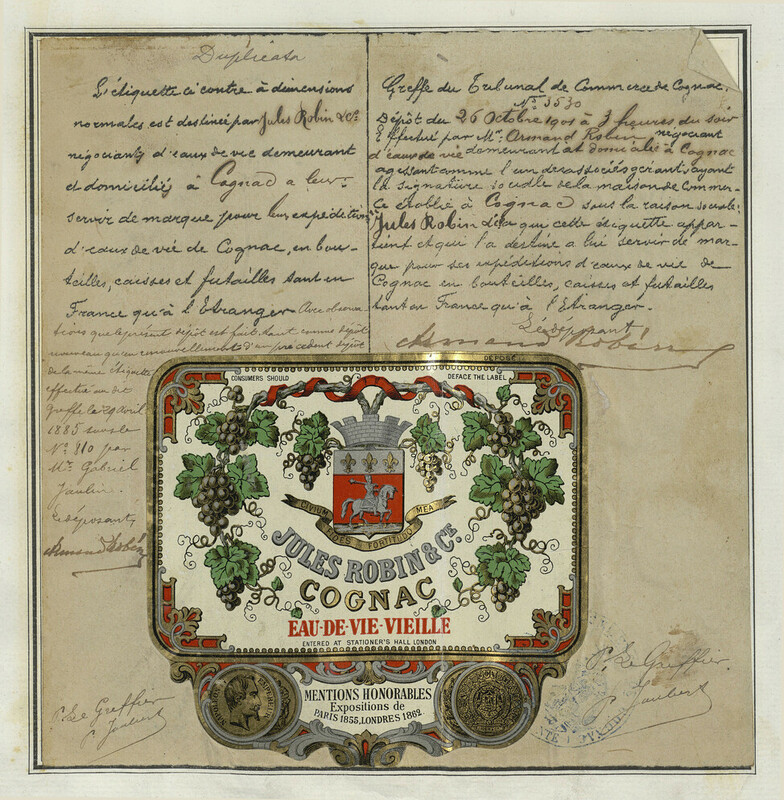 Duplicata
L'étiquette ci contre à dimensions
normales est destinée par Jules Robin & Cie
négociants d'eaux de vie demeurant
et domiciliés à Cognac a leur
servir de marque pour leurs expéditions
d'eaux de vie de Cognac, en bou-
teilles, caisses et futailles tant en
France qu'à l'Etranger. Avec observa
tions que le présent dépôt est fait tant comme dépôt
nouveau qu'en renouvellement d'un précédent dépôt
de la même étiquette
effectué au dit
greffe le 29 avril
1885 sous le
No 810 par
Mr Gabriel
Jaulin.
Le déposant,
Armand Robin
P. Le Greffier
P. Jaubert
Greffe du Tribunal de Commerce de Cognac.
No 3530
Dépôt du 26 Octobre 1901 à 3 heures du soir
Effectué par Mr. Armand Robin, négociant
d'eaux de vie demeurant et domicilié à Cognac
agissant comme l'un des associés gérants, ayant
la signature sociale de la maison de Commer-
ce établie à Cognac sous la raison sociale:
Jules Robin & Cie que cette étiquette appar-
tient et qu'il l'a destine a lui servir de mar-
que pour ses expéditions d'eaux de vie de
Cognac en bouteilles, caisses et futailles
tant en France qu'à l'Etranger.
Le déposant,
Armand Robin
DÉPOSÉ
CONSUMERS SHOULD DEFACE THE LABEL
CIVIUM MEA
FIDES & FORTITUDO
JULES ROBIN & CIE
COGNAC
EAU-DE-VIE-VIEILLE
ENTERED AT STATIONER'S HALL LONDON
MENTIONS HONORABLES
Expositions de
PARIS 1855, LONDRES 1862
NAPOLÉON EMPEREUR
P. Le Greffier.
P. Jaubert